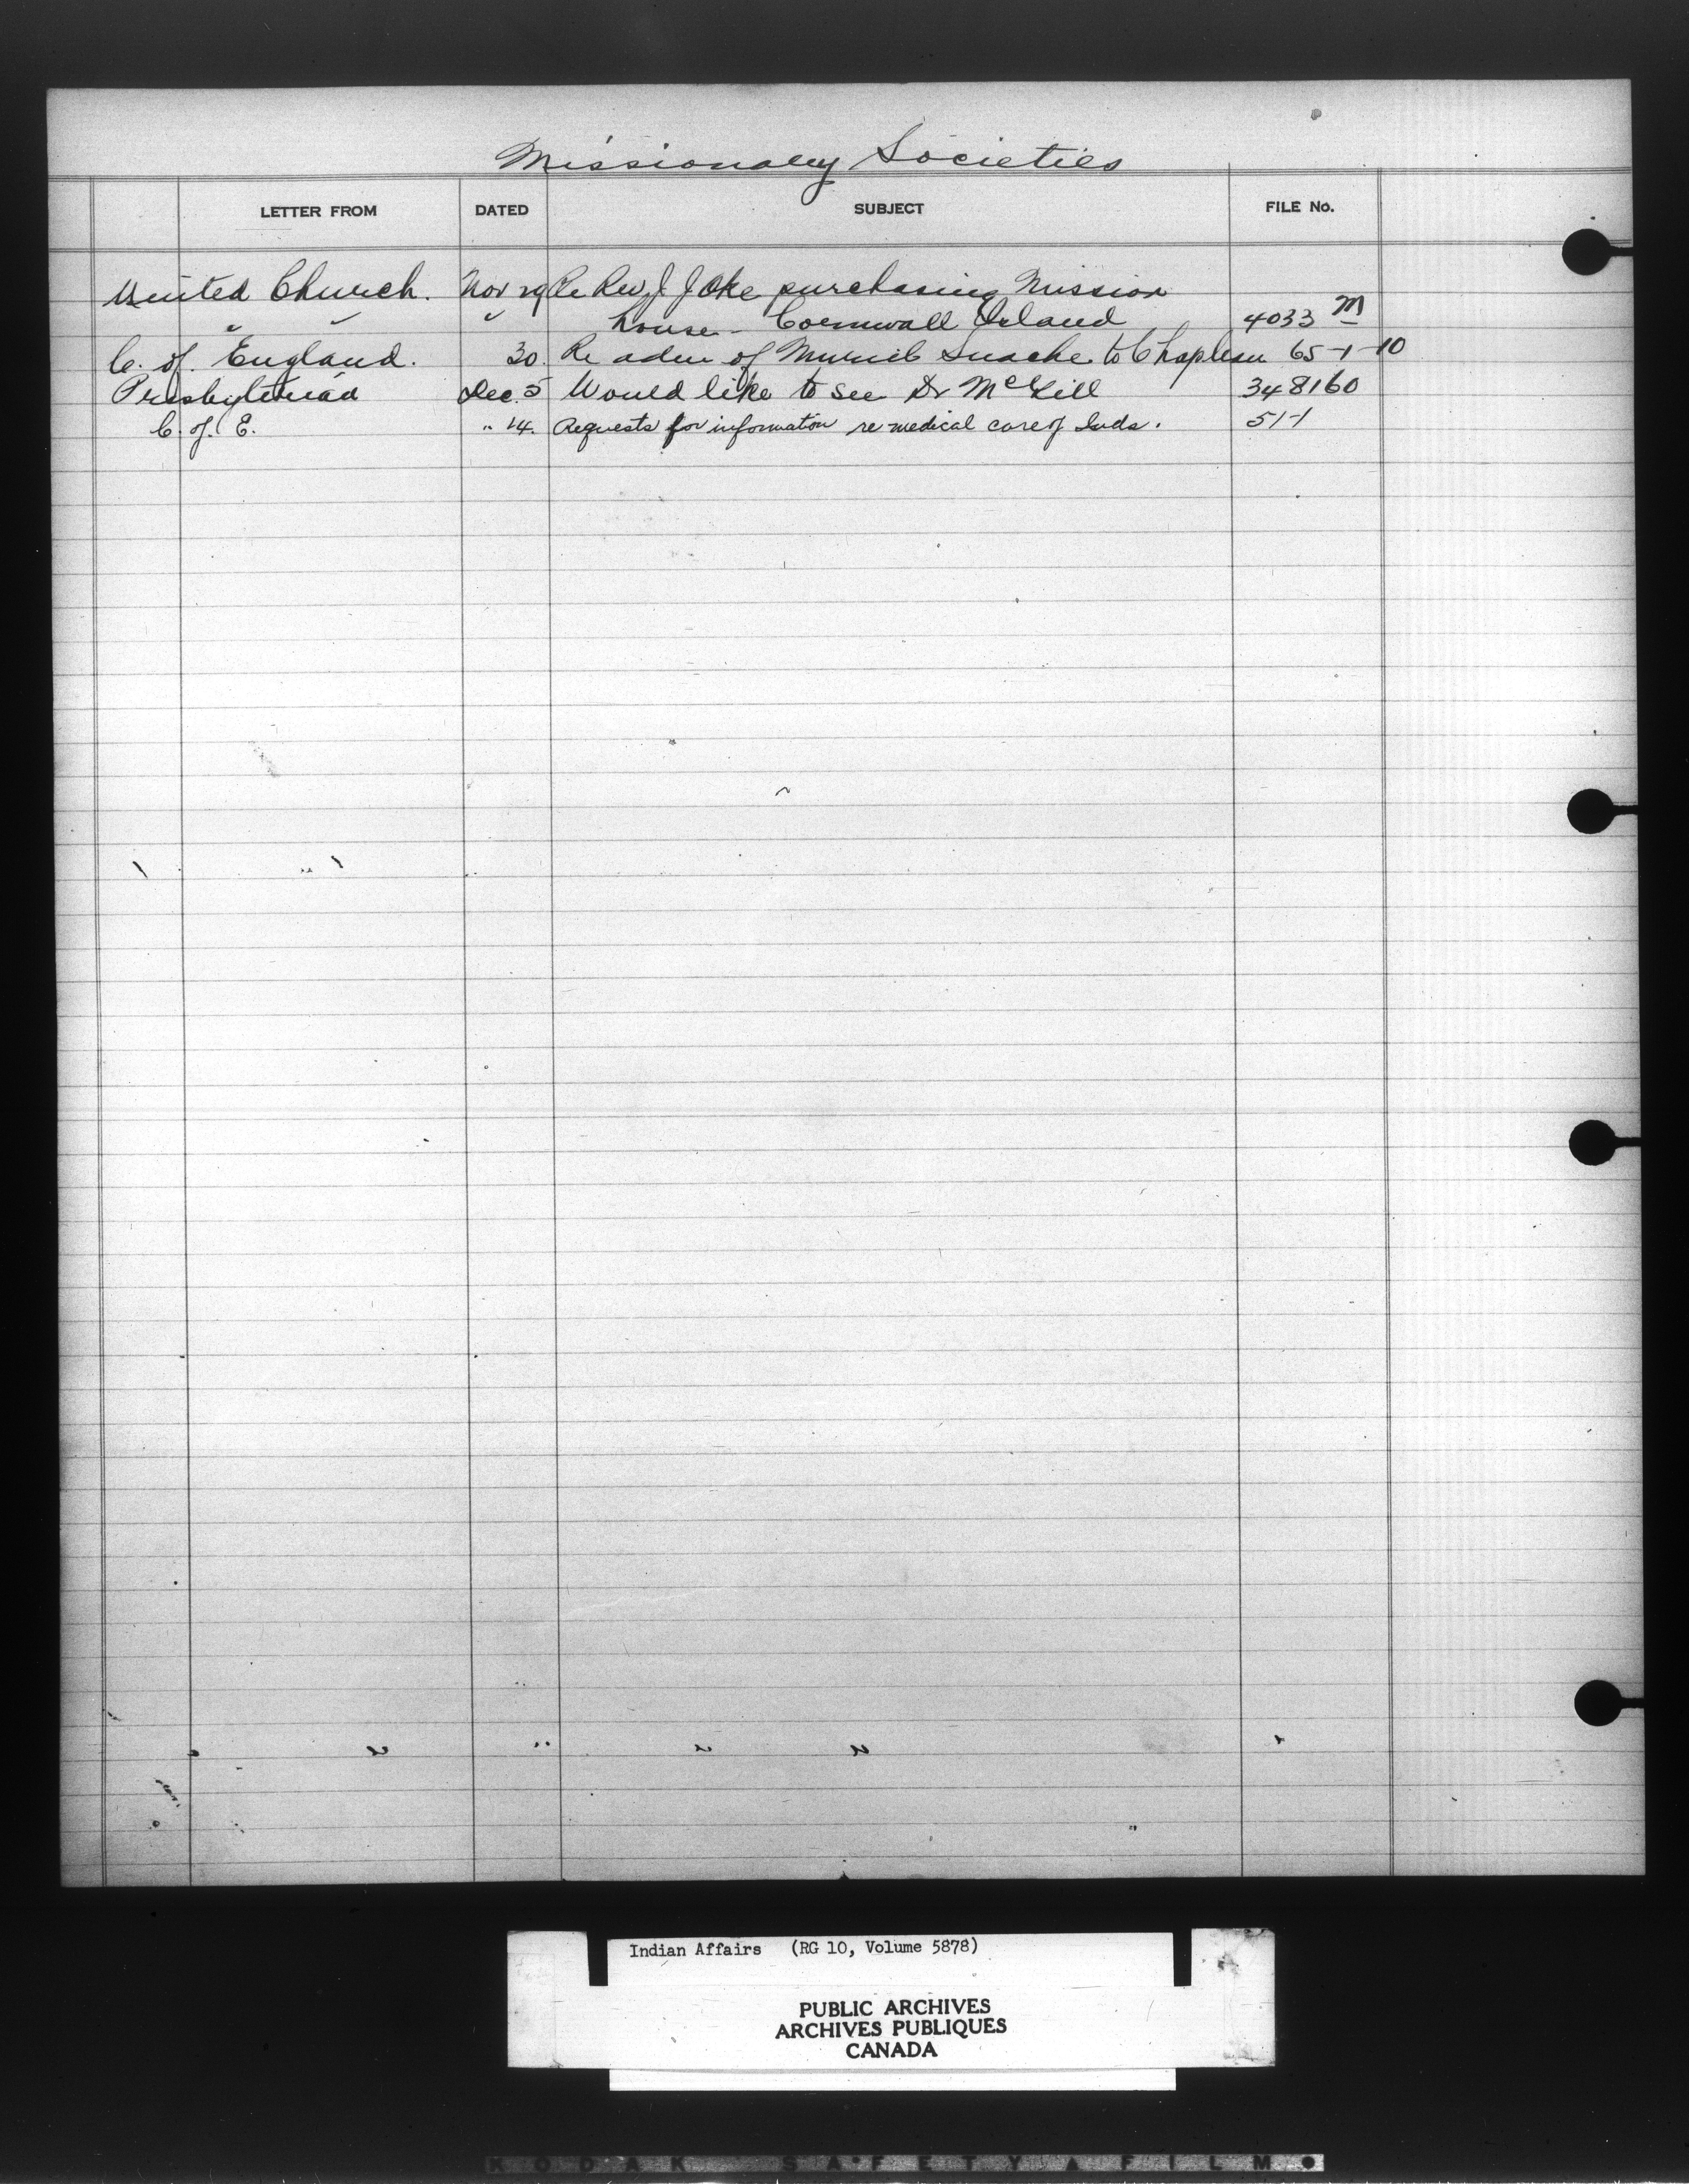 Missionary Societies
LETTER FROM DATED SUBJECT FILE No.
United Church. Nov 29 Re Rev. J. J. Oke purchasing Mission
" " " house - Cornwall Island 4033 M
C. of England. 30. Re adm of to Chapleau 65-1-10
Presbyterian Dec. 5 Would like to see Dr McGill 348160
C. of E. " 14. Requests for information re medical care of Inds. 51-1
Indian Affairs (RG 10, Volume 5878)
PUBLIC ARCHIVES
ARCHIVES PUBLIQUES
CANADA
KODAK SAFETY FILM